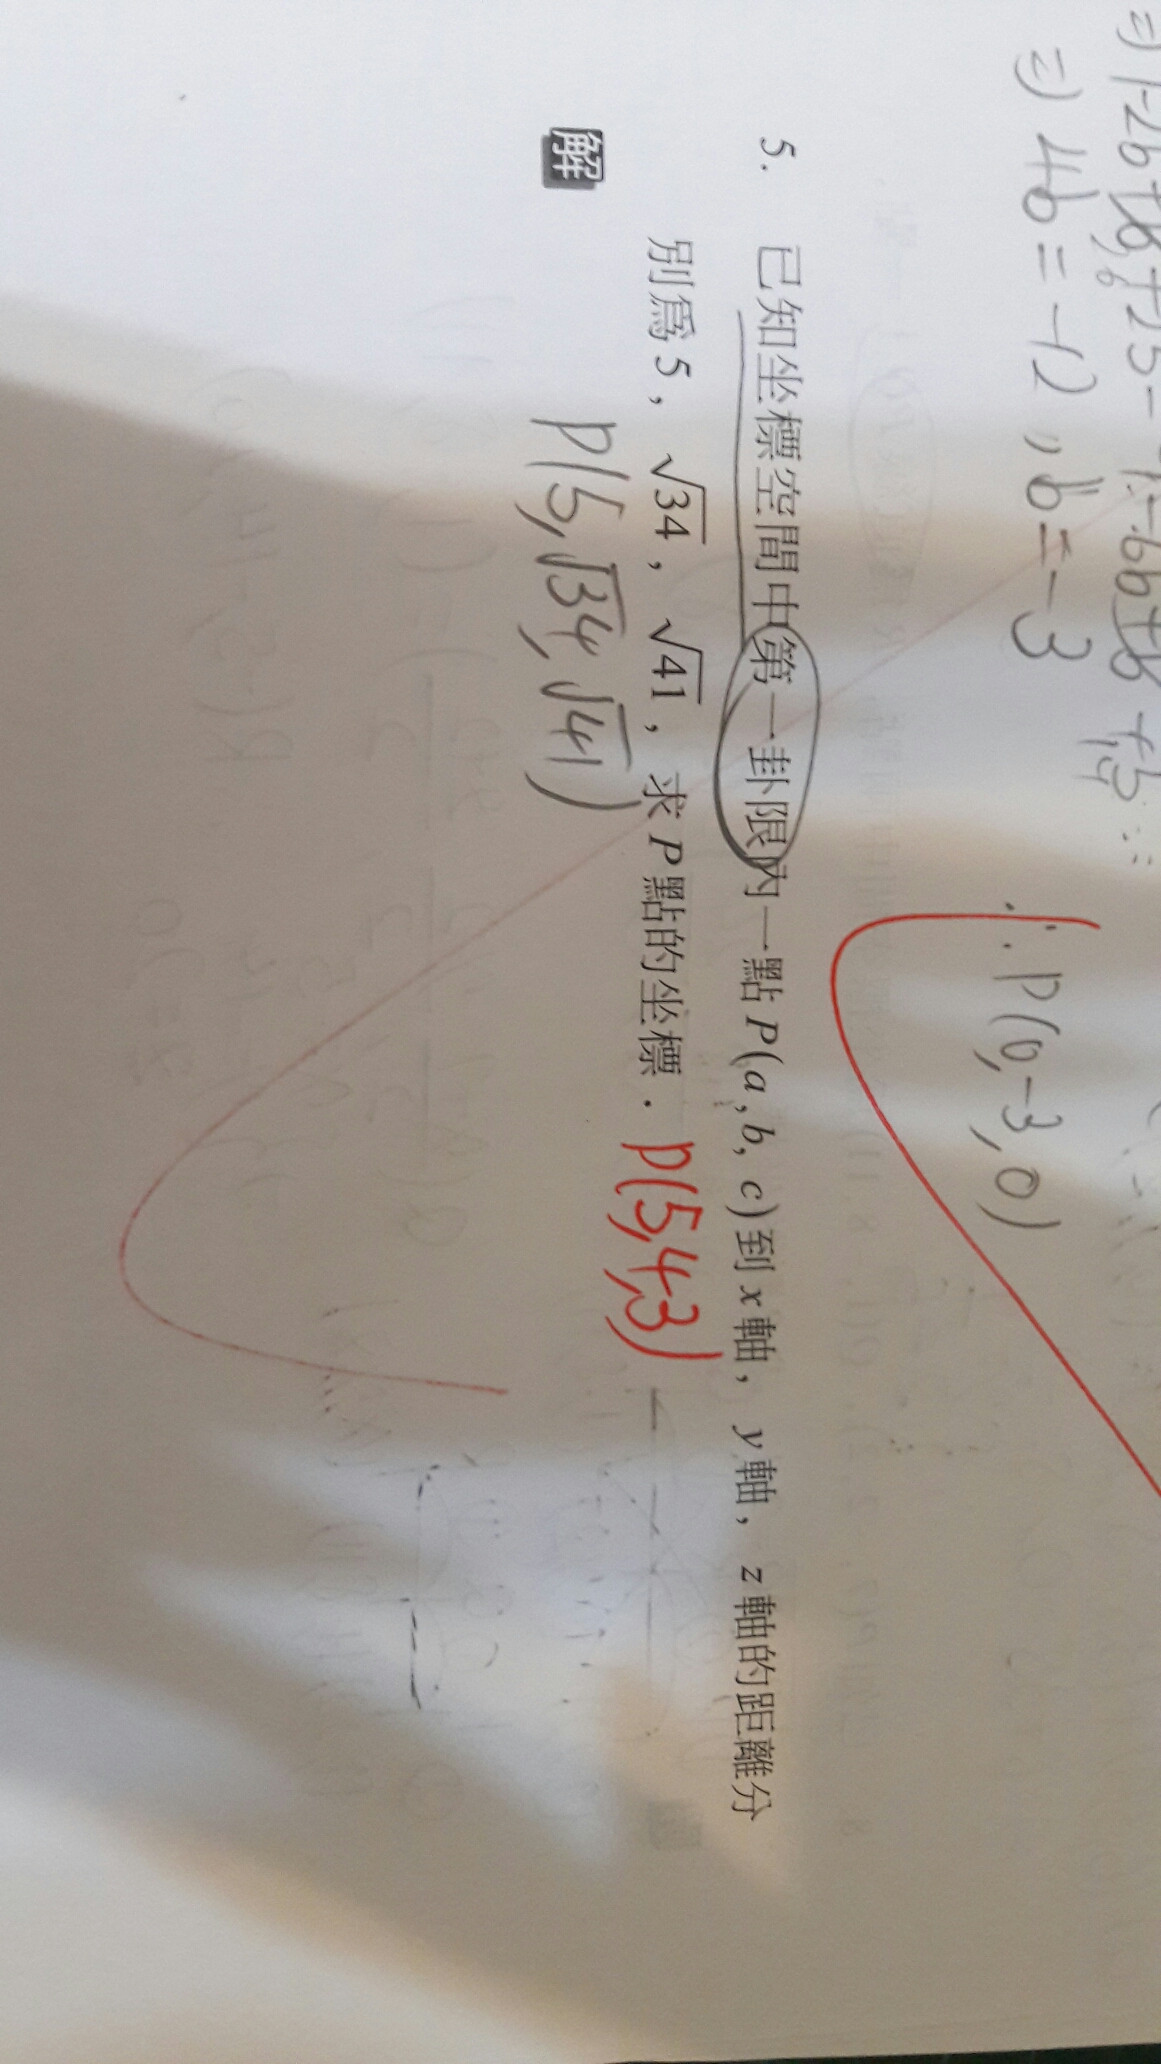 ⇒ 4b = -12, b = -3
∴ P(0,-3,0)
5. 已知坐標空間中第一卦限內一點 P(a, b, c)到 x 軸, y 軸, z 軸的距離分
別為 5, √34, √41, 求 P 點的坐標. P(5,4,3)
解
P(5,√34,√41)